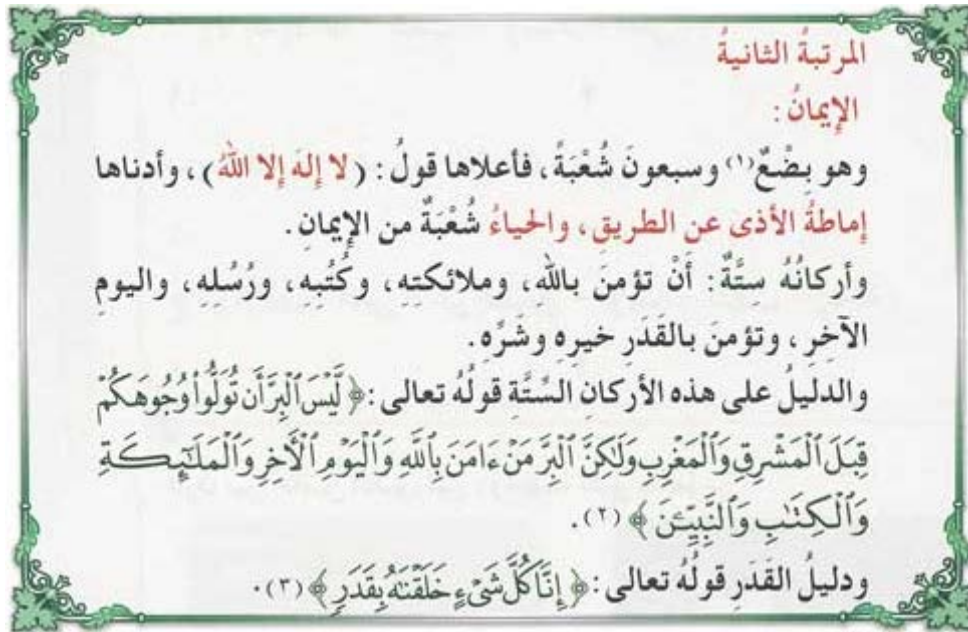 المرتبةُ الثانيةُ
الإِيمانُ :
وهو بِضْعٌ(١) وسبعونَ شُعْبَةً، فأعلاها قولُ : (لا إِلهَ إِلا اللهُ)، وأدناها
إِماطةُ الأذى عن الطريقِ، والحياءُ شُعْبَةٌ من الإِيمانِ.
وأركانُهُ سِتَّةٌ: أَنْ تؤمنَ باللهِ، وملائكتِهِ، وكُتُبِهِ، ورُسُلِهِ، واليومِ
الآخِرِ، وتؤمنَ بالقَدَرِ خيرِهِ وشَرِّهِ.
والدليلُ على هذه الأركانِ السِّتَّةِ قولُهُ تعالى :﴿ لَّيْسَ ٱلْبِرَّ أَن تُوَلُّوا۟ وُجُوهَكُمْ
قِبَلَ ٱلْمَشْرِقِ وَٱلْمَغْرِبِ وَلَٰكِنَّ ٱلْبِرَّ مَنْ ءَامَنَ بِٱللَّهِ وَٱلْيَوْمِ ٱلْأَخِرِ وَٱلْمَلَٰٓئِكَةِ
وَٱلْكِتَٰبِ وَٱلنَّبِيِّـۧنَ ﴾ (٢).
ودليلُ القَدَرِ قولُهُ تعالى :﴿ إِنَّا كُلَّ شَىْءٍ خَلَقْنَٰهُ بِقَدَرٍ ﴾ (٣).